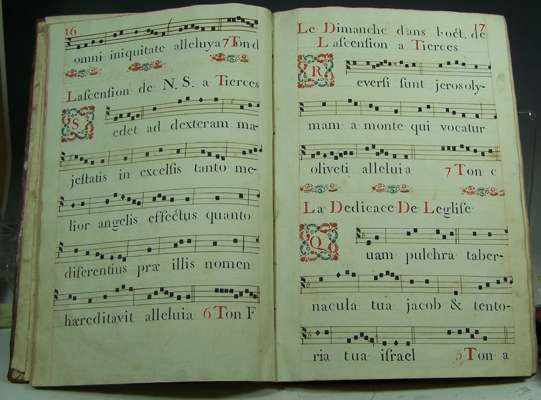 16
omni iniquitate alleluya 7 Ton d
Lascension de N. S. a Tierces
Sedet ad dexteram ma-
jestatis in excelsis tanto me-
lior angelis effectus quanto
diferentius præ illis nomen
hæreditavit alleluia 6 Ton F
17
Le Dimanche dans l'oct. de
Lascension a Tierces
Reversi sunt jerosoly-
mam a monte qui vocatur
oliveti alleluia 7 Ton c
La Dedicace De Leglise
Quam pulchra taber-
nacula tua jacob & tento-
ria tua israel 5 Ton a